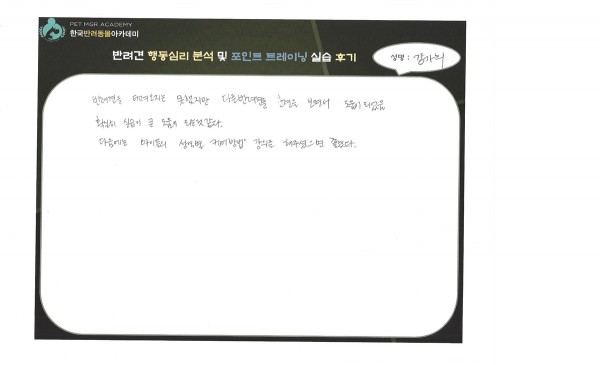 PET MGR ACADEMY
한국반려동물아카데미
반려견 행동심리 분석 및 포인트 트레이닝 실습 후기
성명 :
반려견을 데려오지는 못했지만 다른반려견들 보면서 도움이 되었음
확실히 실습이 큰 도움이 되는것 같다.
다음에는 아이들의 케어방법" 강의를 해주셨으면 좋겠다.